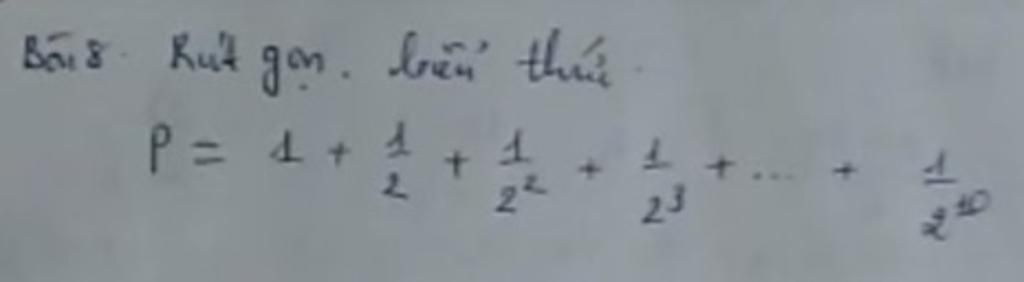 Bài 8. Rút gọn. biểu thức.
P = 1 + 1/2 + 1/2² + 1/2³ + ... + 1/2¹⁰